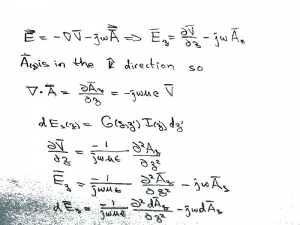 Ē = -∇V̄ - jωĀ ⇒ Ē_z = ∂V̄/∂z - jωĀ_z
Ā(z) is in the k̂ direction so
∇·Ā = ∂Ā_z/∂z = -jωμε V̄
dE_z(z) = G(z,z') I(z) dz'
∂V̄/∂z = -1/jωμε ∂²A_z/∂z²
Ē_z = -1/jωμε ∂²A_z/∂z² - jωA_z
dE_z = -1/jωμε ∂²dA_z/∂z² - jωdA_z